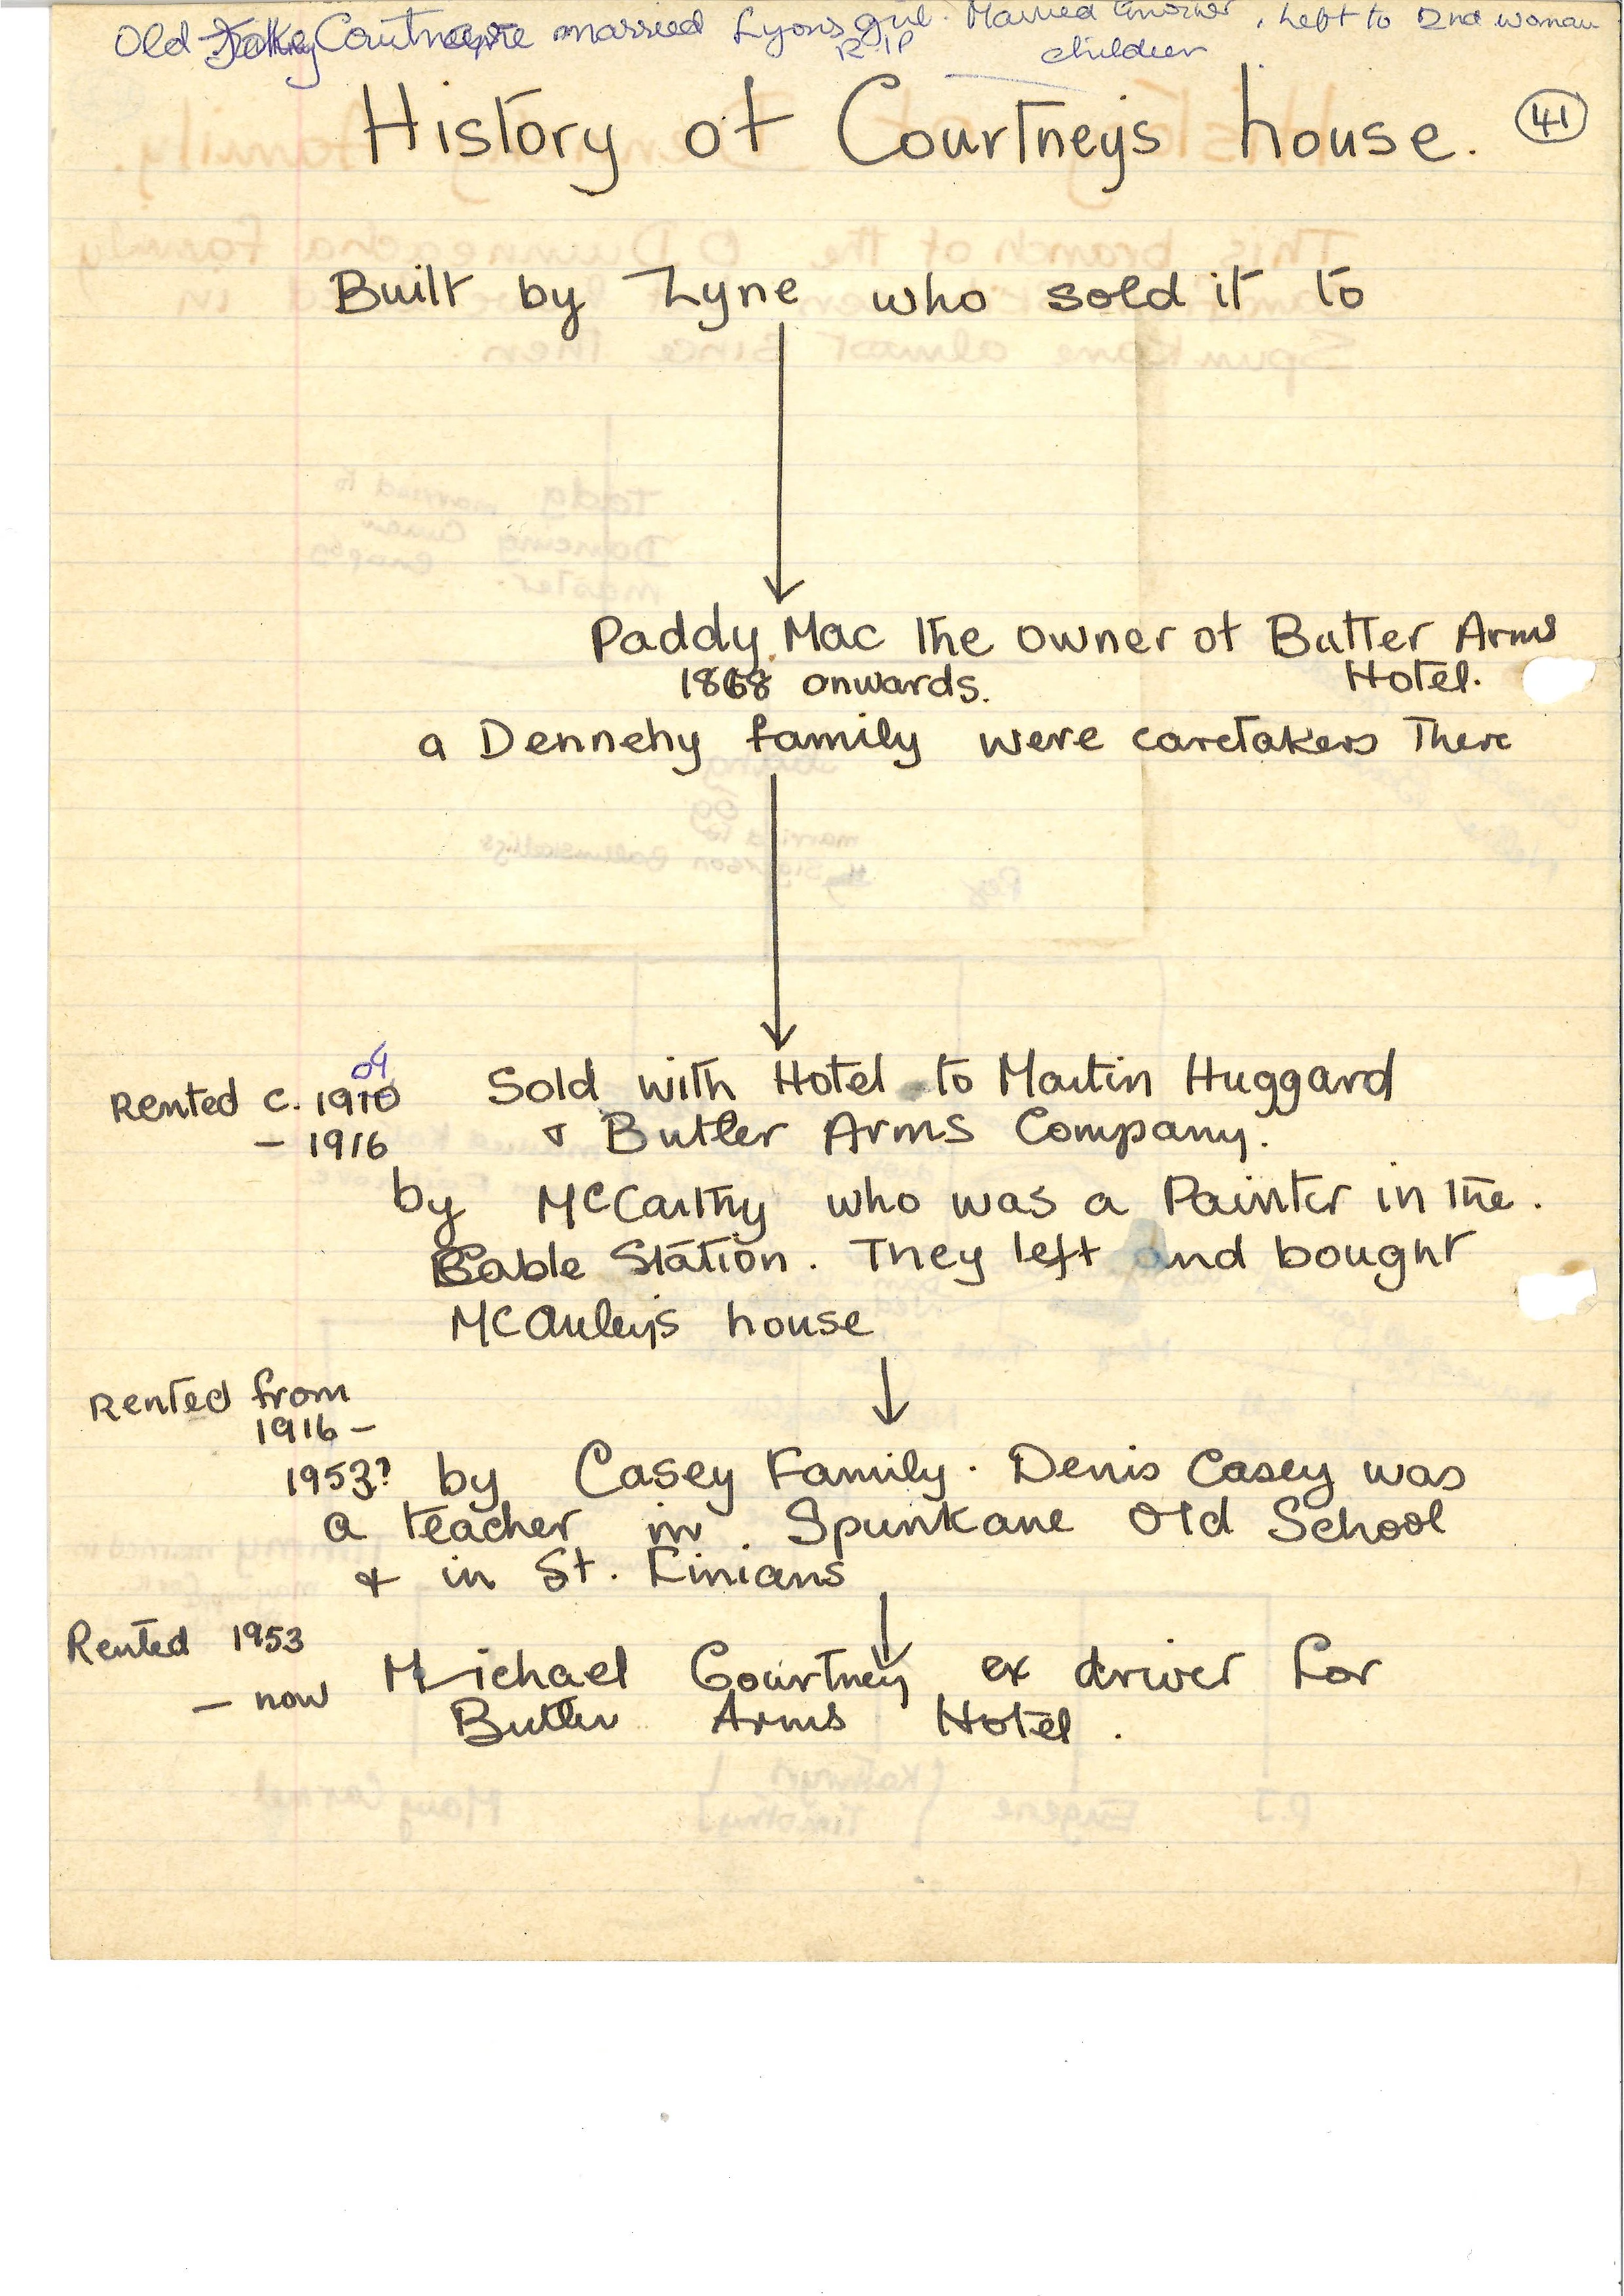 Old Courtney married Lyons girl. Married another, left to 2nd woman
R.I.P children
History of Courtneys house. 41
Built by Lyne who sold it to
Paddy Mac the owner of Butler Arms
1868 onwards. Hotel.
a Dennehy family were caretakers there
04
Rented c. 1910 Sold with Hotel to Martin Huggard
- 1916 & Butler Arms Company.
by McCarthy who was a Painter in the.
Cable Station. They left and bought
McAuleys house
Rented from
1916 -
1953? by Casey Family. Denis Casey was
a teacher in Spunkane Old School
& in St. Finians
Rented 1953
- now Michael Courtney ex driver for
Butler Arms Hotel.